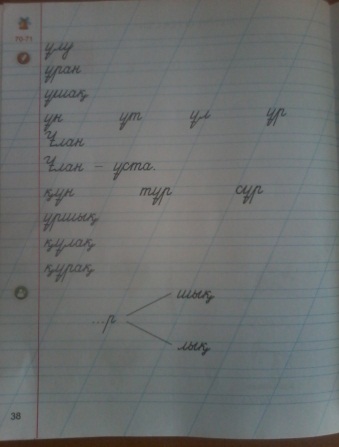 70-71
ұлу
ұран
ұшақ
ұн ұт ұл ұр
Ұлан
Ұлан – ұста.
құн тұр сұр
ұршық
құлақ
құрақ
шық
...р
лық
38